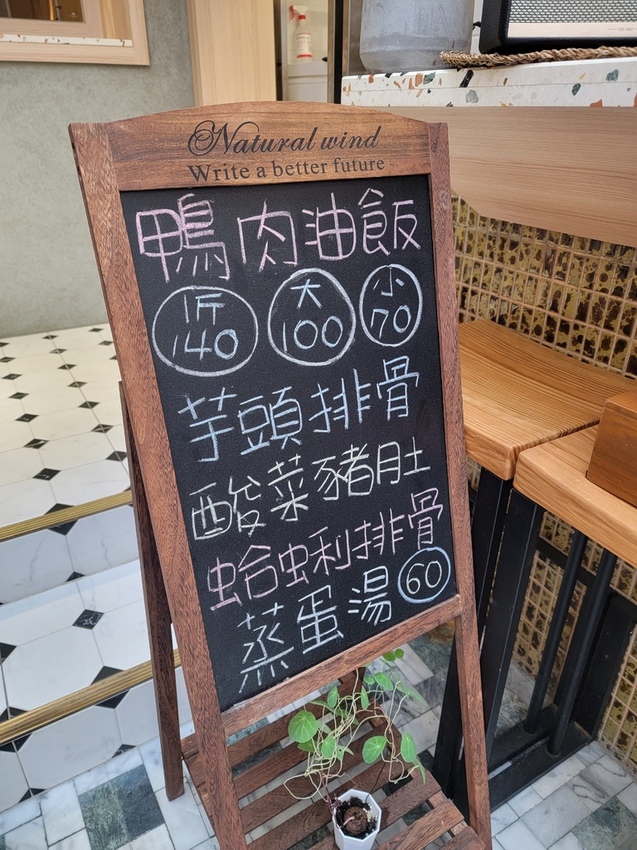 Natural wind
Write a better future
鴨肉油飯
1斤 大 小
140 100 70
芋頭排骨
酸菜豬肚
蛤蜊排骨 60
蒸蛋湯